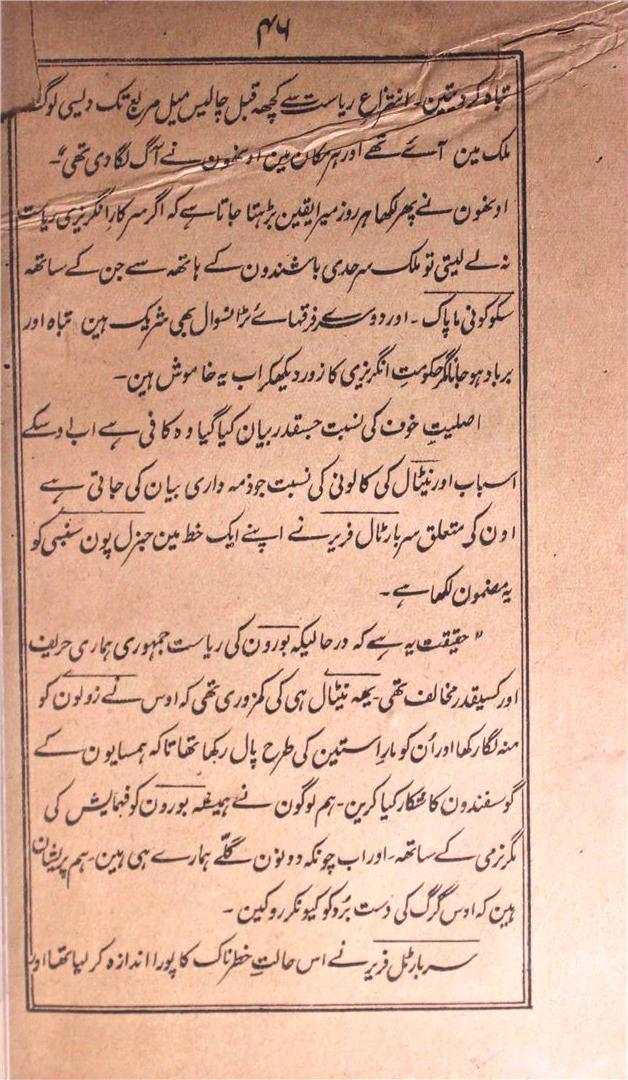 ۴۶
تباہ کر دیتین۔ انتزاعِ ریاست سے کچھہ قبل چالیس میل مربع تک دیسی لوگ
ملک مین آئے تھے اور ہر مکان مین اونھون نے آگ لگا دی تھی"۔
اونھون نے پھر لکھا ہر روز میرا یقین بڑہتا جاتا ہے کہ اگر سرکار انگریزی ریاست
نہ لے لیتی تو ملک سرحدی باشندون کے ہاتھہ سے جن کے ساتھہ
سکوکونی ماپاک۔ اور دوسرے فرقہائے ٹرانسوال بھی شریک ہین تباہ اور
برباد ہو جاتا مگر حکومتِ انگریزی کا زور دیکھکر اب یہ خاموش ہین۔
اصلیتِ خوف کی نسبت جسقدر بیان کیا گیا وہ کافی ہے اب اوسکے
اسباب اور نیٹال کی کالونی کی نسبت جو ذمہ داری بیان کی جاتی ہے
اون کی متعلق سر بارٹال فریر نے اپنے ایک خط مین جنرل پون سنبی کو
یہ مضمون لکھا ہے۔
"حقیقت یہ ہے کہ درحالیکہ بورون کی ریاست جمہوری ہماری حریف
اور کسیقدر مخالف تھی۔ یھہ نیٹال ہی کی کمزوری تھی کہ اوس نے زولون کو
منہ لگا رکھا اور اُن کو مارِ استین کی طرح پال رکھا تھا تاکہ ہمسایون کے
گوسفندون کا شکار کیا کرین۔ ہم لوگون نے ہمیشہ بورون کو فہمایش کی
مگر نرمی کے ساتھہ۔ اور اب چونکہ دونون گلّے ہمارے ہی ہین۔ ہم پریشان
ہین کہ اوس گرگ کی دست بُرد کو کیونکر روکین۔
سر بارٹل فریر نے اس حالتِ خطرناک کا پورا اندازہ کر لیا تھا اور